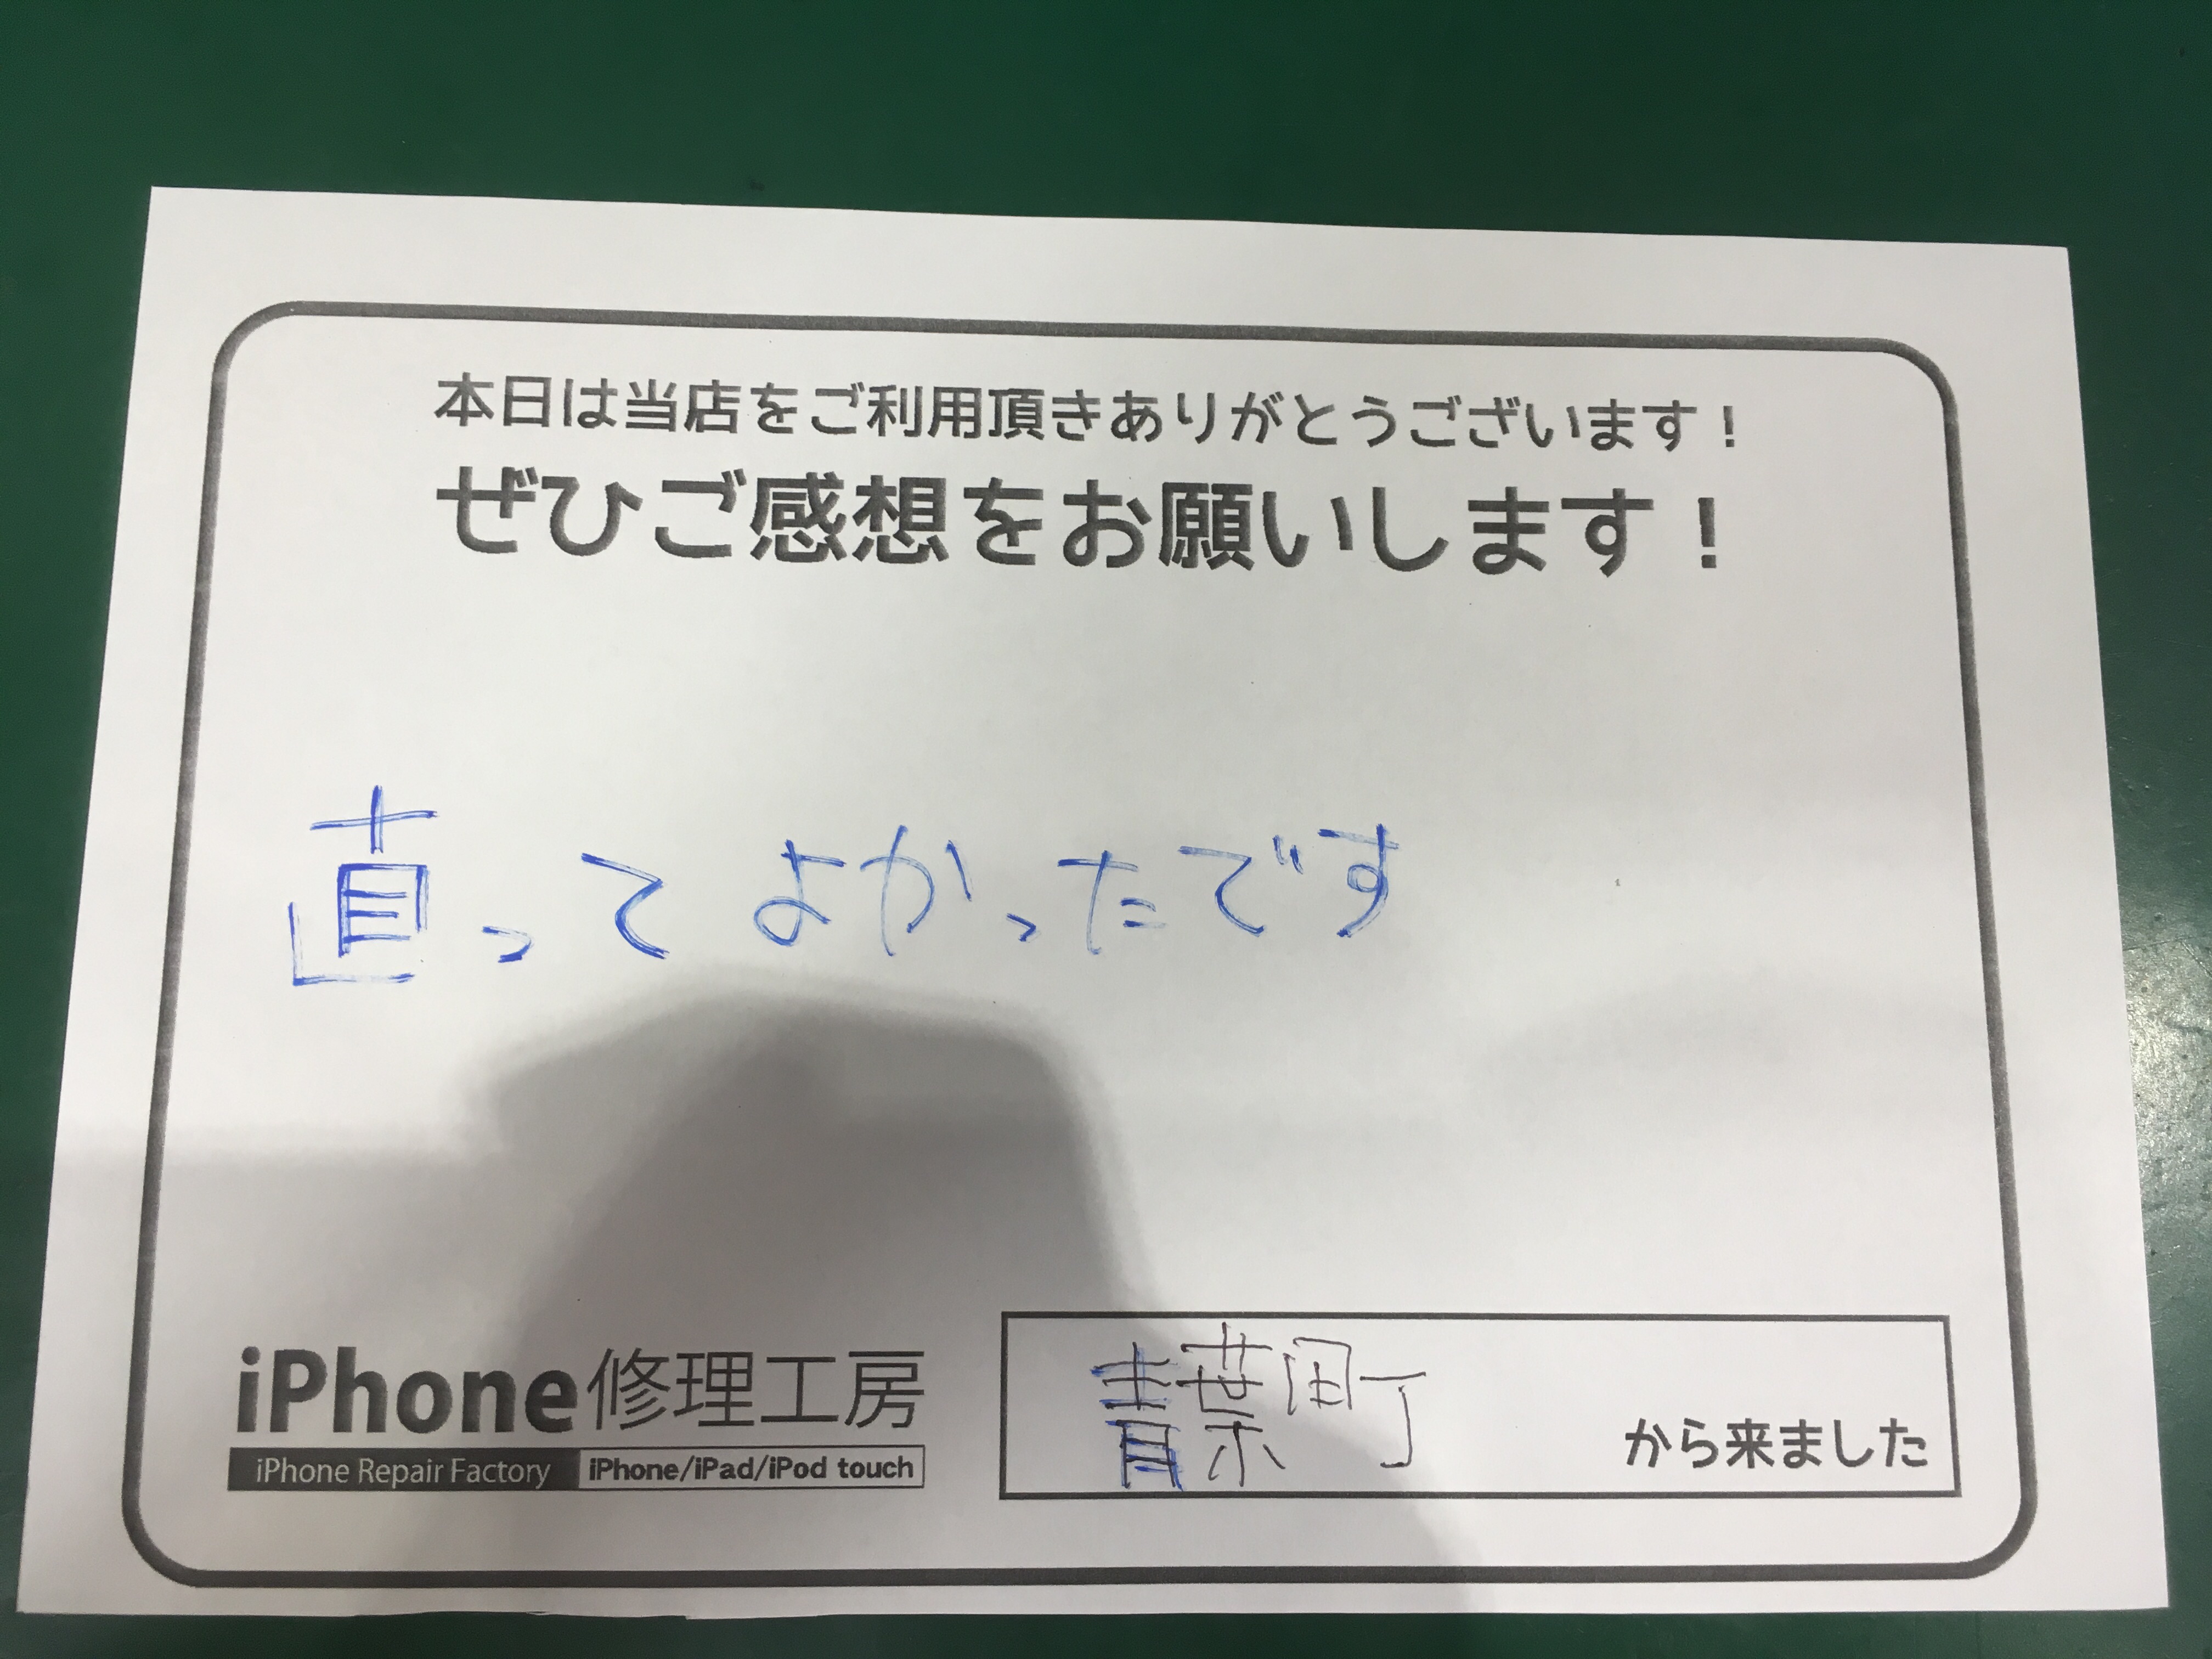 本日は当店をご利用頂きありがとうございます！
ぜひご感想をお願いします！
直ってよかったです
iPhone修理工房
iPhone Repair Factory iPhone/iPad/iPod touch
青葉町 から来ました